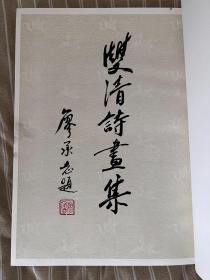 雙清詩畫集
廖承志題